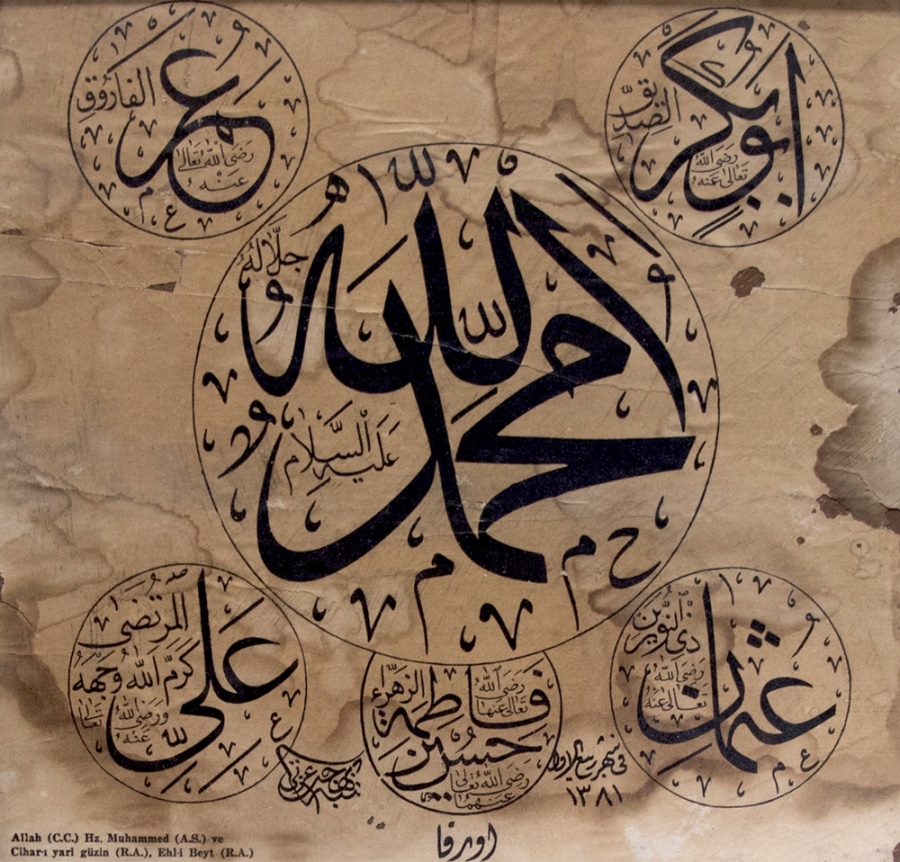 ابو بكر الصديق
رضى الله تعالى عنه
عمر الفاروق
رضى الله تعالى عنه
الله
جل جلاله
محمد
عليه السلام
عثمان
ذى النورين
رضى الله تعالى عنه
على المرتضى
كرم الله وجهه
ورضى الله تعالى عنه
فاطمة الزهراء
رضى الله تعالى عنها
حسين
رضى الله تعالى عنهما
فى شهر ربيع الاول
١٣٨١
اورفا
Allah (C.C.) Hz. Muhammed (A.S.) ve
Cihar-ı yari güzin (R.A.), Ehl-i Beyt (R.A.)